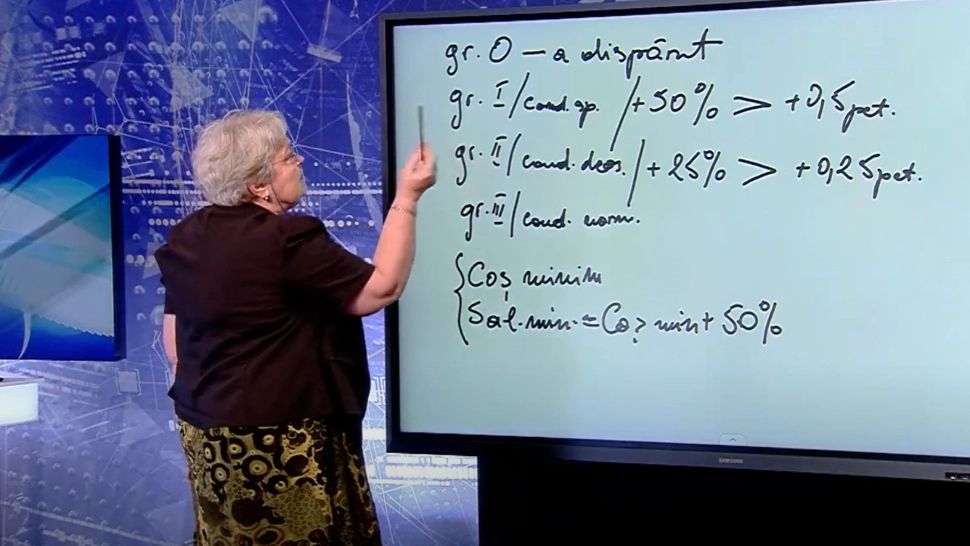 gr. 0 — a dispărut
gr. I / cond. sp. / +50% > +0,5 pct.
gr. II / cond. deos. / +25% > +0,25 pct.
gr. III / cond. norm.
{ Coș minim
Sal. min. = Coș min + 50%
SAMSUNG